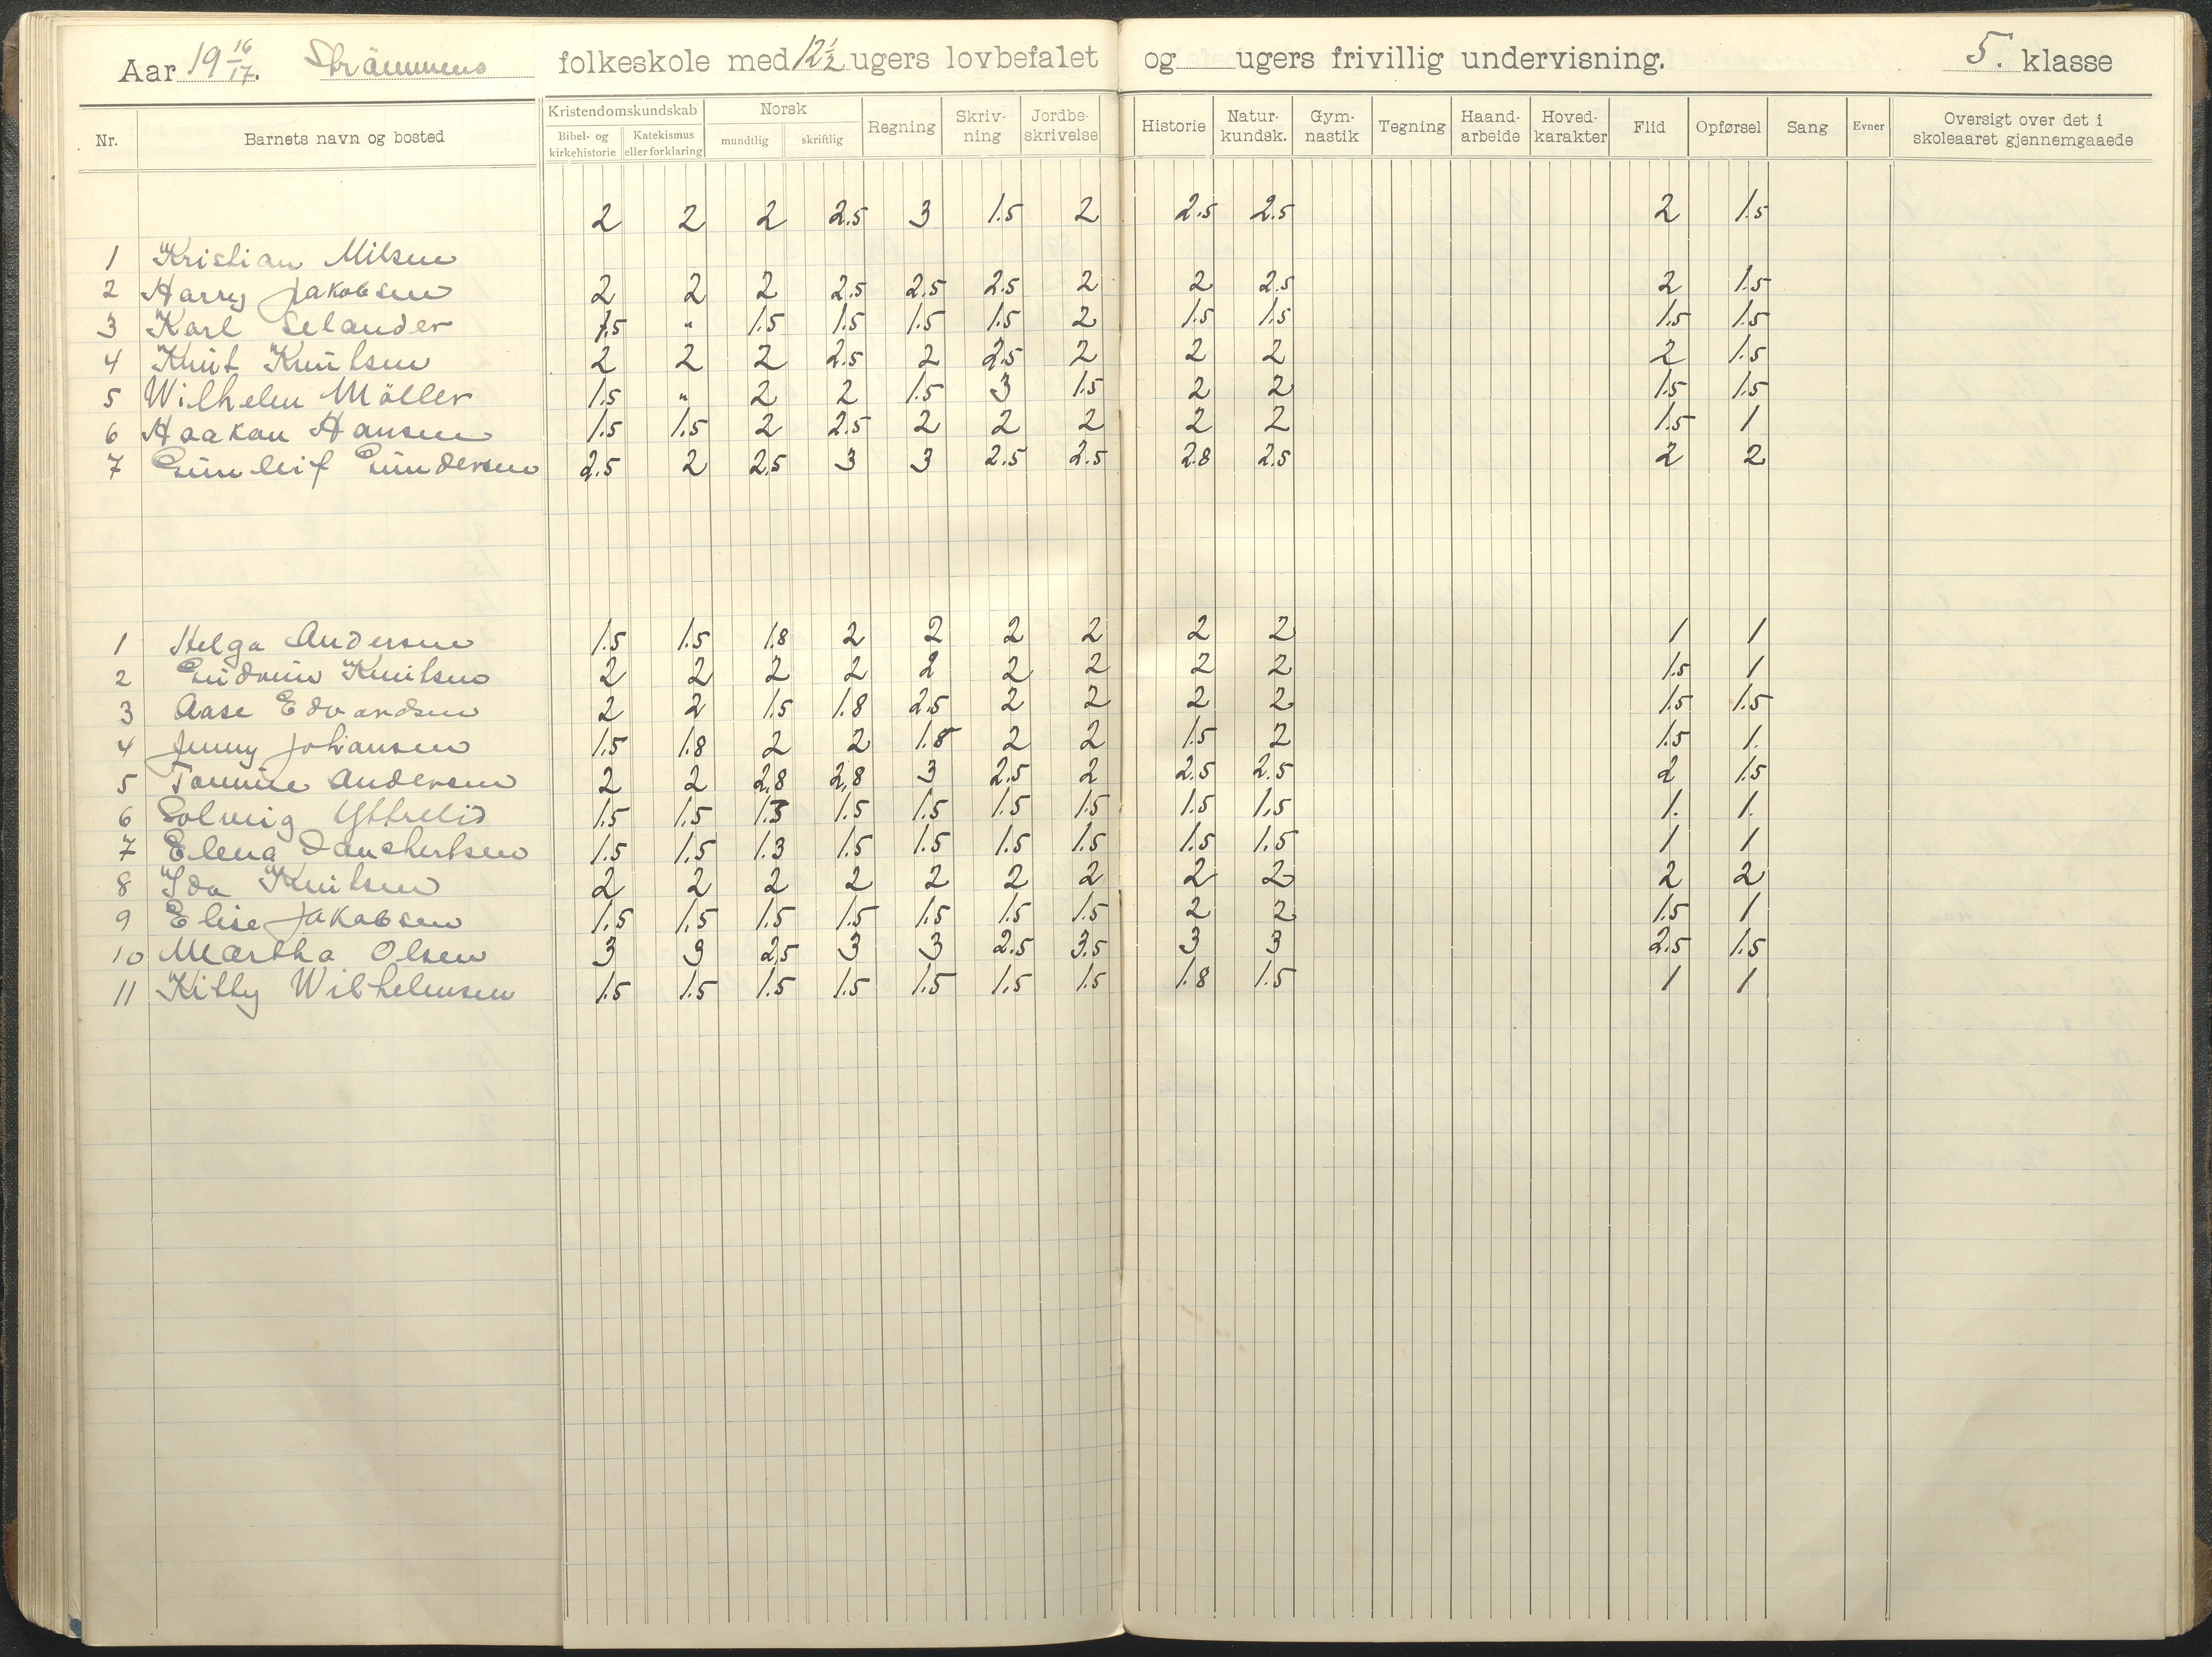 Aar 19 16/17. Strämmens folkeskole med 12 1/2 ugers lovbefalet og ugers frivillig undervisning. 5. klasse
Nr. Barnets navn og bosted Kristendomskundskab Bibel- og kirkehistorie Katekismus eller forklaring Norsk mundtlig skriftlig Regning Skriv-ning Jordbe-skrivelse Historie Natur-kundsk. Gym-nastik Tegning Haand-arbeide Hoved-karakter Flid Opførsel Sang Evner Oversigt over det i skoleaaret gjennemgaaede
2 2 2 2.5 3 1.5 2 2.5 2.5 2 1.5
1 Kristian Nilsen
2 Harry Jakobsen 2 2 2 2.5 2.5 2.5 2 2 2.5 2 1.5
3 Karl Selander 1.5 " 1.5 1.5 1.5 1.5 2 1.5 1.5 1.5 1.5
4 Knut Knutsen 2 2 2 2.5 2 2.5 2 2 2 2 1.5
5 Wilhelm Möller 1.5 " 2 2 1.5 3 1.5 2 2 1.5 1.5
6 Haakon Hansen 1.5 1.5 2 2.5 2 2 2 2 2 1.5 1
7 Gunleif Gundersen 2.5 2 2.5 3 3 2.5 2.5 2.8 2.5 2 2
1 Helga Andersen 1.5 1.5 1.8 2 2 2 2 2 2 1 1
2 Gudrun Knutsen 2 2 2 2 2 2 2 2 2 1.5 1
3 Aase Edvardsen 2 2 1.5 1.8 2.5 2 2 2 2 1.5 1.5
4 Jenny Johansen 1.5 1.8 2 2 1.8 2 2 1.5 2 1.5 1.
5 Tomine Andersen 2 2 2.8 2.8 3 2.5 2 2.5 2.5 2 1.5
6 Solveig Yttrelid 1.5 1.5 1.3 1.5 1.5 1.5 1.5 1.5 1.5 1. 1.
7 Elena Danchertsen 1.5 1.5 1.3 1.5 1.5 1.5 1.5 1.5 1.5 1 1
8 Ida Knutsen 2 2 2 2 2 2 2 2 2 2 2
9 Elise Jakobsen 1.5 1.5 1.5 1.5 1.5 1.5 1.5 2 2 1.5 1
10 Martha Olsen 3 3 2.5 3 3 2.5 3.5 3 3 2.5 1.5
11 Kitty Wilhelmsen 1.5 1.5 1.5 1.5 1.5 1.5 1.5 1.8 1.5 1 1